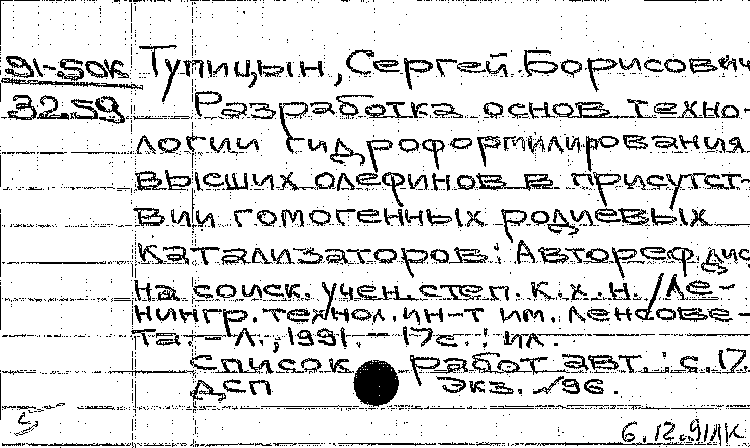 91-50К Тупицын, Сергей Борисович
32.59 Разработка основ техно-
логии гидроформилирования
высших олефинов в присутст-
вии гомогенных родиевых
катализаторов: Автореф. дис
на соиск. учен. степ. к.х.н. / Ле-
нингр. технол. ин-т им. Ленсове-
та. - Л., 1991. - 17с.: ил.
Список работ авт.: с.17.
ДСП Экз. №96.
6.12.91ЛК